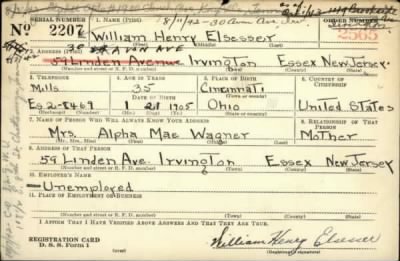 SERIAL NUMBER 1. NAME (Print) 8/11/42 - 30 Avon Ave. Irv. ORDER NUMBER
No 2207 William Henry Elsesser 2565
(First) (Middle) (Last)
38 AVON AVE
2. ADDRESS (Print)
59 Linden Avenue Irvington Essex New Jersey
(Number and street or R. F. D. number) (Town) (County) (State)
3. TELEPHONE 4. AGE IN YEARS 5. PLACE OF BIRTH 6. COUNTRY OF CITIZENSHIP
Mills 35 Cincinnati
DATE OF BIRTH (Town or county)
Es 2-8469 1 21 1905 Ohio United States
(Exchange) (Number) (Mo.) (Day) (Yr.) (State or country)
7. NAME OF PERSON WHO WILL ALWAYS KNOW YOUR ADDRESS 8. RELATIONSHIP OF THAT PERSON
Mrs. Alpha Mae Wagner Mother
(Mr., Mrs., Miss) (First) (Middle) (Last)
9. ADDRESS OF THAT PERSON
59 Linden Ave. Irvington Essex New Jersey
(Number and street or R. F. D. number) (Town) (County) (State)
10. EMPLOYER'S NAME
Unemployed
11. PLACE OF EMPLOYMENT OR BUSINESS
(Number and street or R. F. D. number) (Town) (County) (State)
I AFFIRM THAT I HAVE VERIFIED ABOVE ANSWERS AND THAT THEY ARE TRUE.
REGISTRATION CARD
D. S. S. Form 1 William Henry Elsesser
(Registrant's signature)